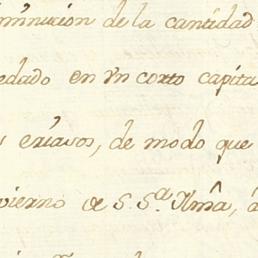 iminución de la cantidad
edado en Vn corto capita
s criavos, de modo que
vierno de S. Sª. Ylmâ, á